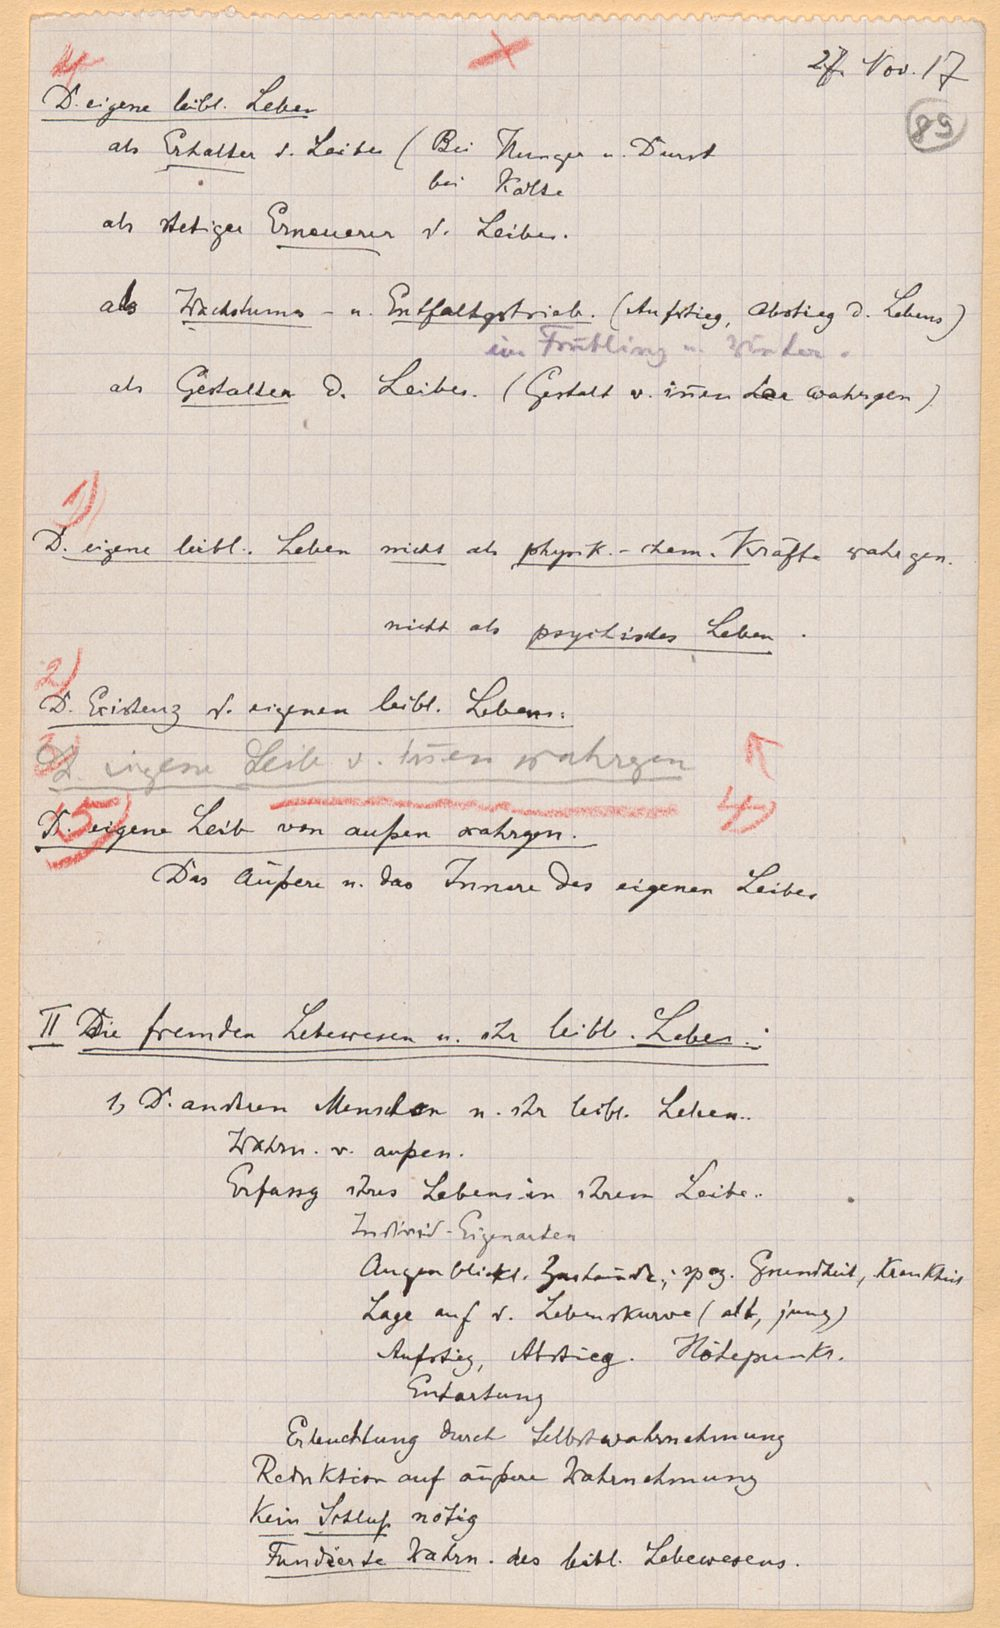 27. Nov. 17
89
4)
D. eigene leibl. Leben
als Erhalter d. Leibes ( Bei Hunger u. Durst
bei Kälte
als stetiger Erneuerer d. Leibes.
als Wachstums- u. Entfaltgstrieb. (Aufstieg, Abstieg d. Lebens)
im Frühling u. Winter.
als Gestalter d. Leibes. (Gestalt v. innen her wahrgen)
1)
D. eigene leibl. Leben nicht als physik.-chem. Kräfte wahrgen.
nicht als psychisches Leben.
2)
D. Existenz d. eigenen leibl. Lebens:
3)
D. eigene Leib v. innen wahrgen
4)
5)
D. eigene Leib von außen wahrgen.
Das Äußere u. das Innere des eigenen Leibes
II Die fremden Lebewesen u. ihr leibl. Leben:
1, D. anderen Menschen u. ihr leibl. Leben.
Wahrn. v. außen.
Erfassg ihres Lebens in ihrem Leibe.
Individ-Eigenarten
Augenblickl. Zustände; spez. Gesundheit, Krankheit
Lage auf d. Lebenskurve (alt, jung)
Aufstieg, Abstieg. Höhepunkt.
Entartung
Erleuchtung durch Selbstwahrnehmung
Reduktion auf äußere Wahrnehmung
Kein Schluß nötig
Fundierte Wahrn. des leibl. Lebewesens.